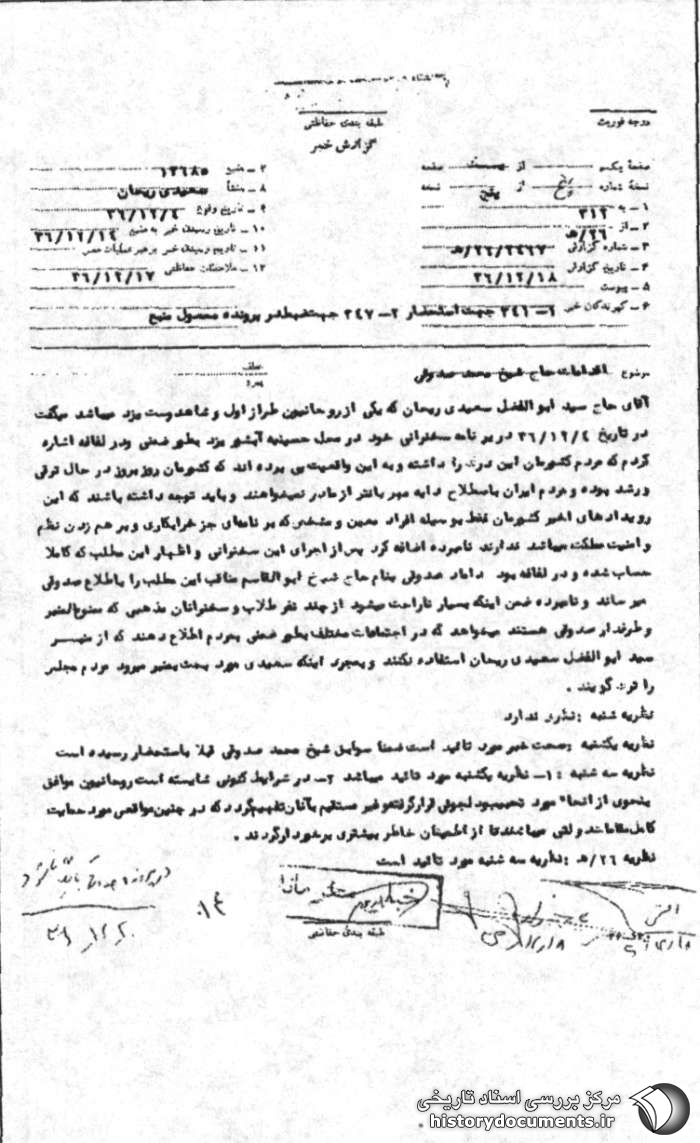 درجه فوریت
طبقه بندی حفاظتی
گزارش خبر
صفحه یکم از بیست صفحه
نسخه شماره پنج از پنج نسخه
۱ـ به ۳۱۲
۲ـ از ۲۶/ه‍
۳ـ شماره گزارش ۲۶/۲۴۶۷/ه‍
۴ـ تاریخ گزارش ۳۶/۱۲/۱۸
۵ـ پیوست
۶ـ گیرندگان خبر ۱ـ ۳۴۱ جهت استحضار ۲ـ ۳۴۷ جهت ضبط در پرونده محصول منبع
۷ـ منبع ۱۳۶۸۵
۸ـ منشأ سعیدی ریحان
۹ـ تاریخ وقوع ۳۶/۱۲/۴
۱۰ـ تاریخ رسیدن خبر به منبع ۳۶/۱۲/۱۴
۱۱ـ تاریخ رسیدن خبر برهبر عملیات
۱۲ـ ملاحظات حفاظتی ۳۶/۱۲/۱۷
موضوع اقدامات حاج شیخ محمد صدوقی
عطف
پیرو
آقای حاج سید ابوالفضل سعیدی ریحان که یکی از روحانیون طراز اول و شاهدوست یزد میباشد میگفت
در تاریخ ۳۶/۱۲/۴ در برنامه سخنرانی خود در محل حسینیه آبشور یزد بطور ضمنی و در لفافه اشاره
کردم که مردم کشورمان این درک را داشته و به این واقعیت پی برده اند که کشورمان روز بروز در حال ترقی
و رشد بوده و مردم ایران باصطلاح دایه مهربانتر از مادر نمیخواهند و باید توجه داشته باشند که این
رویدادهای اخیر کشورمان فقط بوسیله افراد معین و مشخص که برنامه‌ای جز خرابکاری و بر هم زدن نظم
و امنیت مملکت میباشد ندارند نامبرده اضافه کرد پس از اجرای این سخنرانی و اظهار این مطلب که کاملا
حساب شده و در لفافه بود داماد صدوقی بنام حاج شیخ ابوالقاسم مناقب این مطلب را باطلاع صدوقی
میرساند و نامبرده ضمن اینکه بسیار ناراحت میشود از چند نفر طلاب و سخنرانان مذهبی که ممنوع المنبر
و طرفدار صدوقی هستند میخواهد که در اجتماعات مختلف بطور ضمنی بمردم اطلاع دهند که از منبر
سید ابوالفضل سعیدی ریحان استفاده نکنند و بمجرد اینکه سعیدی مورد بحث بمنبر میرود مردم مجلس
را ترک گویند .
نظریه شنبه : نظری ندارد
نظریه یکشنبه : صحت خبر مورد تائید است ضمنا سوابق شیخ محمد صدوقی قبلا باستحضار رسیده است
نظریه سه شنبه : ۱ـ نظریه یکشنبه مورد تائید میباشد ۲ـ در شرایط کنونی شایسته است روحانیون موافق
بنحوی از انحاء مورد تحبیب و دلجوئی قرار گرفته و غیر مستقیم بآنان تفهیم گردد که در چنین مواقعی مورد حمایت
کامل مقامات دولتی میباشند تا از اطمینان خاطر بیشتری برخوردار گردند .
نظریه ۲۶/ه‍ : نظریه سه شنبه مورد تائید است
طبقه بندی حفاظتی
مرکز بررسی اسناد تاریخی
historydocuments.ir